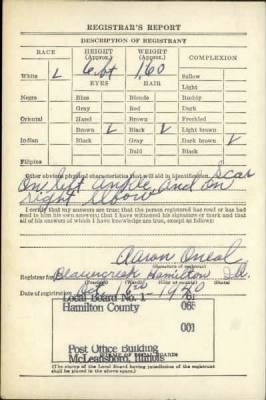 REGISTRAR'S REPORT
DESCRIPTION OF REGISTRANT
RACE HEIGHT (Approx.) WEIGHT (Approx.) COMPLEXION
White 6 ft 160 Sallow
EYES HAIR Light
Negro Blue Blonde Ruddy
Gray Red Dark
Oriental Hazel Brown Freckled
Brown Black Light brown
Indian Black Gray Dark brown
Bald Black
Filipino
Other obvious physical characteristics that will aid in identification Scar
On left ankle and on
right
I certify that my answers are true; that the person registered has read or has had
read to him his own answers; that I have witnessed his signature or mark and that
all of his answers of which I have knowledge are true, except as follows:
Aaron Oneal
(Signature of registrar)
Registrar for Hamilton Ill.
(Precinct) (Ward) (City or county) (State)
Date of registration Oct 16 1940
Local Board No. 1 61
Hamilton County 065
001
Post Office Building
McLeansboro, Illinois
(STAMP OF LOCAL BOARD)
(The stamp of the Local Board having jurisdiction of the registrant
shall be placed in the above space.)